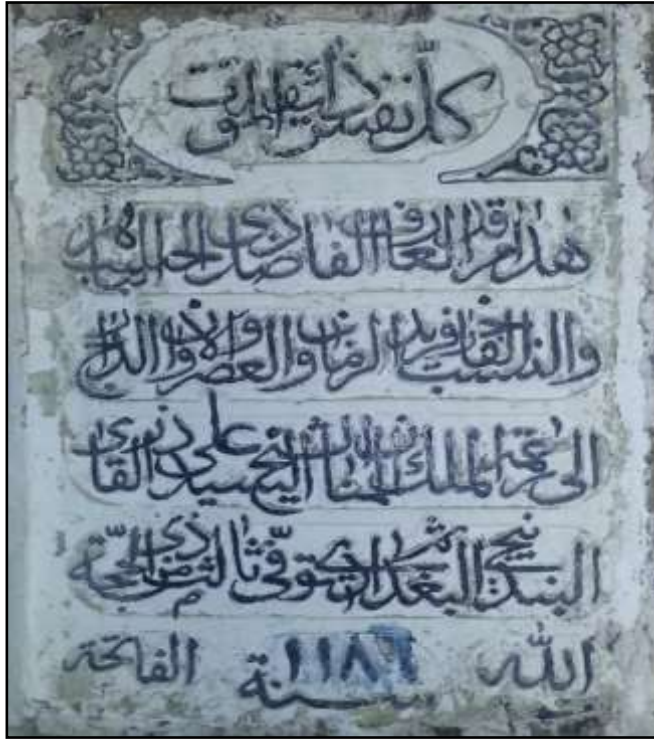 كل نفس ذائقة الموت
هذا مرقد العارف الفاضل ذي الحسب الباهر
والنسب الفاخر فريد الزمان والعصر والاوان
الى رحمة الملك المنان الشيخ سيد علي القادري
البندنيجي ثم البغدادي توفي ثالث من ذي الحجة
الله سنة ١١٨٦ الفاتحة